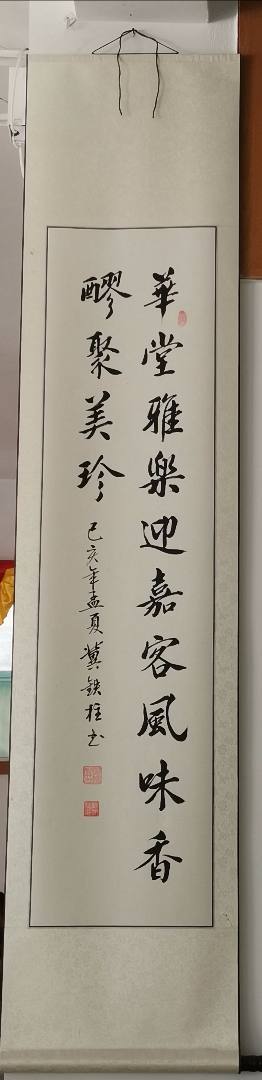 華堂雅樂迎嘉客風味香
醪聚美珍
己亥年孟夏冀鉄柱书